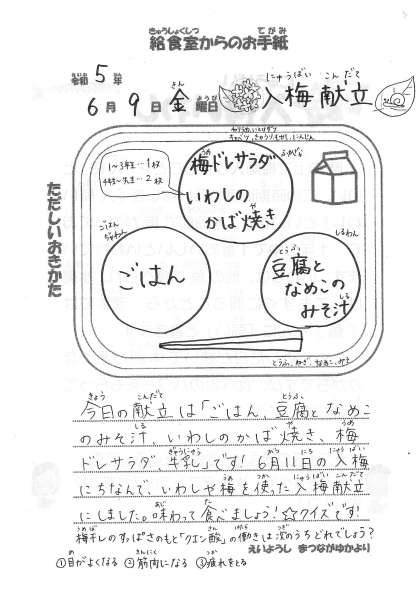 給食室からのお手紙
令和5年
6月9日金曜日
入梅献立
ただしいおきかた
1〜3年生…1枚
4年生〜先生…2枚
梅ドレサラダ
いわしの
かば焼き
ふかざら
ごはん
ちゃわん
ごはん
しるわん
豆腐と
なめこの
みそ汁
とうふ、ねぎ、なめこ、みそ
今日の献立は「ごはん、豆腐となめこ
のみそ汁、いわしのかば焼き、梅
ドレサラダ、牛乳」です！6月11日の入梅
にちなんで、いわしや梅を使った入梅献立
にしました。味わって食べましょう！☆クイズです！
梅干しのすっぱさのもと「クエン酸」の働きは次のうちどれでしょう？
えいようし まつながゆかより
①目がよくなる ②筋肉になる ③疲れをとる